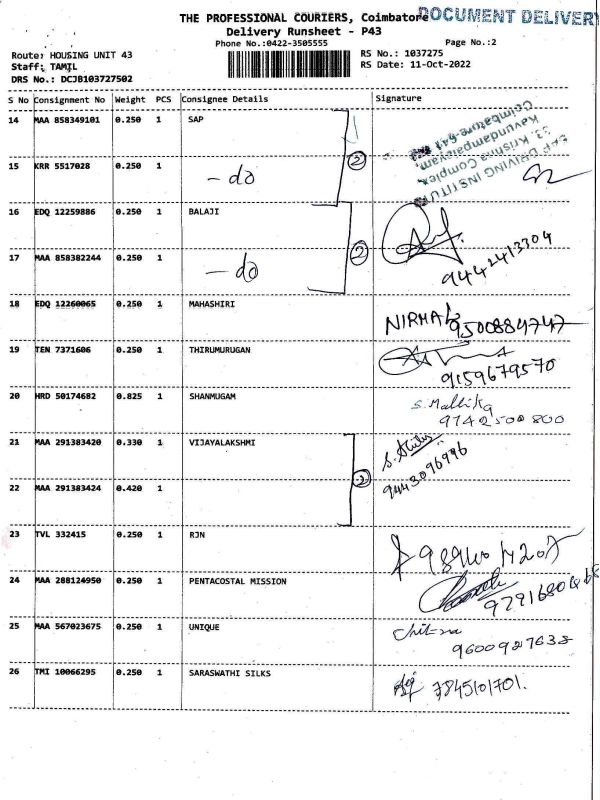 THE PROFESSIONAL COURIERS, Coimbatore
DOCUMENT DELIVERY
Delivery Runsheet - P43
Phone No.:0422-3505555
Page No.:2
Route: HOUSING UNIT 43
RS No.: 1037275
Staff: TAMIL
RS Date: 11-Oct-2022
DRS No.: DCJB103727502
S No Consignment No Weight PCS Consignee Details Signature
14 MAA 858349101 0.250 1 SAP
DRIVING INSTITUTE
Krishna Complex,
Kavundampalayam,
Coimbatore-641
15 KRR 5517028 0.250 1 - do
2
16 EDQ 12259886 0.250 1 BALAJI
9442413304
17 MAA 858382244 0.250 1 - do
2
18 EDQ 12260065 0.250 1 MAHASHIRI
NIRMAL 9500884747
19 TEN 7371606 0.250 1 THIRUMURUGAN
9159679570
20 HRD 50174682 0.825 1 SHANMUGAM
S. Mallika
9742500800
21 MAA 291383420 0.330 1 VIJAYALAKSHMI
9443096996
22 MAA 291383424 0.420 1
2
23 TVL 332415 0.250 1 RJN
24 MAA 288124950 0.250 1 PENTACOSTAL MISSION
25 MAA 567023675 0.250 1 UNIQUE
Chitra
9600927638
26 TMI 10066295 0.250 1 SARASWATHI SILKS
7845101701.